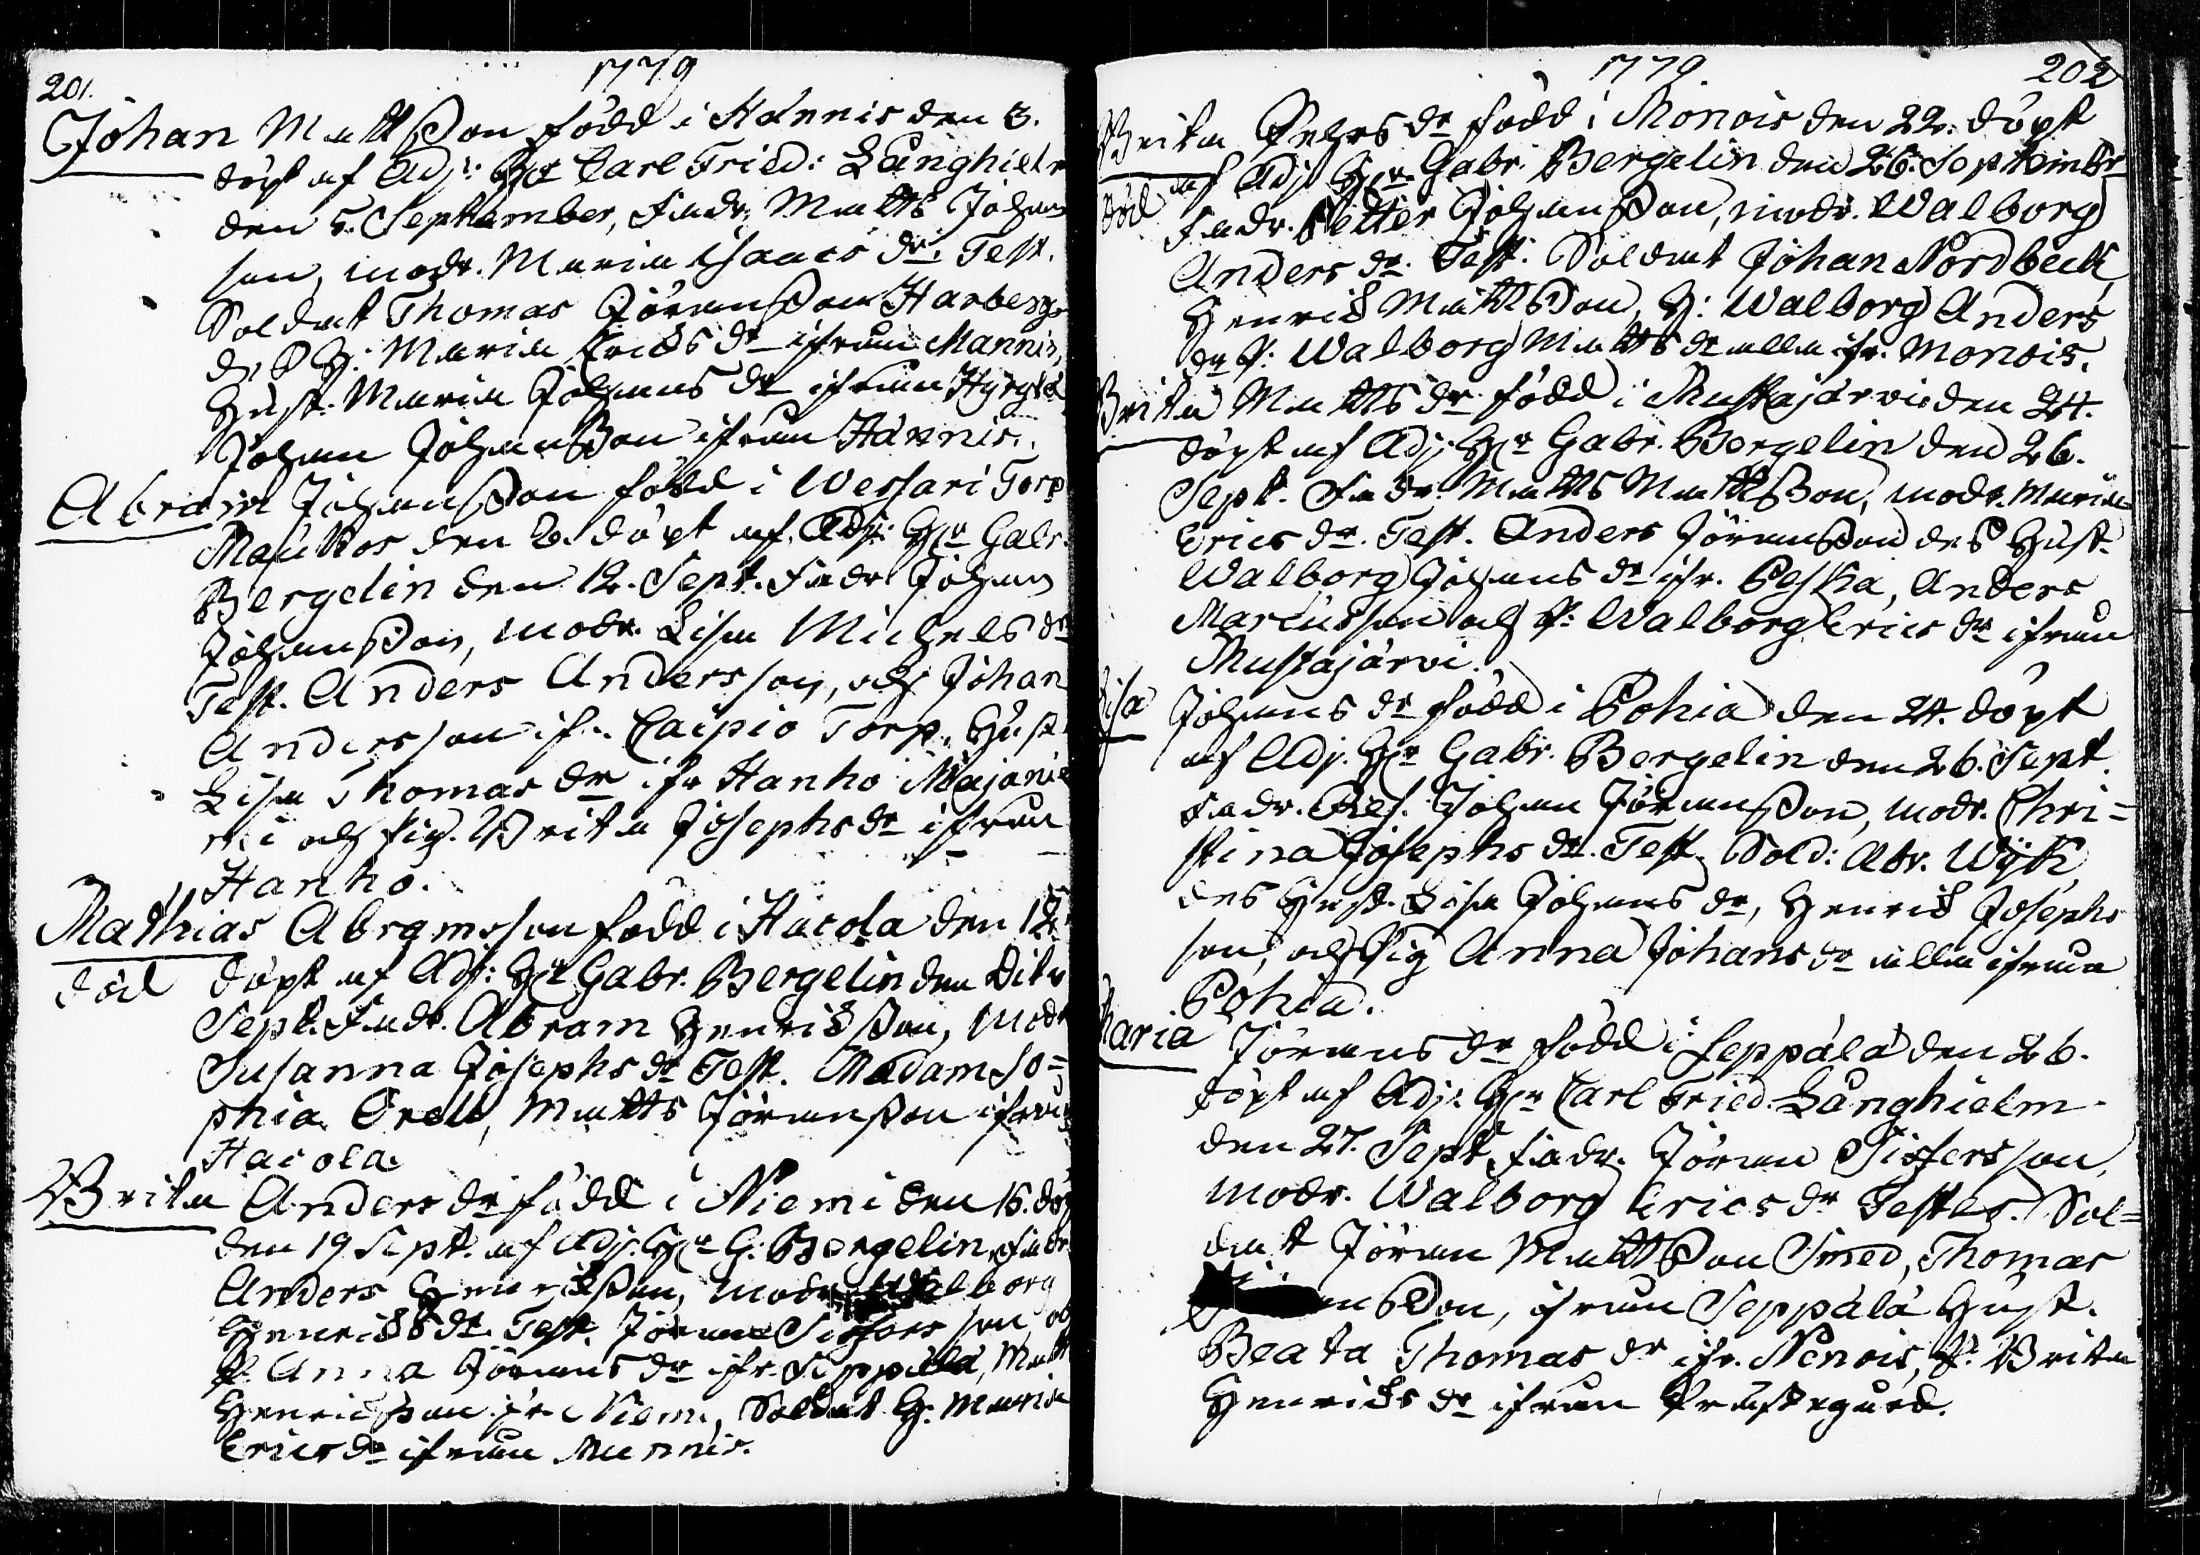 201. 1779
Johan Mattsson född i Hännis den 3.
döpt af Adj: Hr Carl Fried: Långhielm
den 5. September, Fadr. Matts Johans
son, modr. Maria Isaacs dr. Test.
Soldat Thomas Jöransson Harberg
dess H: Maria Erics dr ifrån Mannis,
Hust: Maria Johans dr ifrån Hyrylä
Johan Johansson ifrån Hännis.
Abram Johansson född i Wessari Torp
Maukos den 2. döpt af Adj: Hr Gabr.
Bergelin den 12. Sept. Fadr Johan
Johansson, modr. Lisa Michels dr
Test. Anders Andersson, och Johan
Andersson ifr. Caipio Torp, Hust
Lisa Thomas dr ifr Hanho Majanie
mi och Pig. Brita Josephs dr ifrån
Hanho.
Mathias Abramsson född i Hacola den 12.
död döpt af Adj: Hr Gabr. Bergelin den Dito
Sept. Fadr. Abram Henricsson, modr
Susanna Josephs dr Test. Madam So=
phia Orell, Matts Jöransson ifrån
Hacola.
Brita Anders dr född i Niemi den 15. döpt
den 19 Sept. af Adj. Hr G. Bergelin, Fadr
Anders Henricsson, modr Walborg
Henrics dr. Test. Jöran Sigfersson och
P. Anna Jörans dr ifr. Seppälä, Matts
Henricsson ifr Niemi, Soldat H. Maria
Erics dr ifrån Mannis.
1779. 202
Brita Peters dr född i Monois den 22. döpt
af Adj. Hr. Gabr. Bergelin den 26. Septembr
död Fadr. Petter Johansson, modr. Walborg
Anders dr. Test: Soldat Johan Nordbeck,
Henric Mattsson, H: Walborg Anders
dr P: Walborg Matts dr alla ifr. Monois.
Brita Matts dr. född i Mustajärvi den 24.
döpt af Adj: Hr Gabr. Bergelin den 26.
Sept. Fadr. Matts Mattsson, modr. Maria
Erics dr. Test. Anders Jöransson dess Hust.
Walborg Johans dr ifr. Peska, Anders
Marcusson och P: Walborg Erics dr ifrån
Mustajärvi.
Lisa Johans dr född i Pohia den 24. döpt
af Adj. Hr Gabr. Bergelin den 26. Sept.
Fadr. Ref. Johan Jöransson, modr. Chri=
stina Josephs dr. Test. Sold: Abr. Wijk
des Hust. Lisa Johans dr, Henric Josephs
son, och Pig Anna Johans dr alla ifrån
Pohia.
Maria Jörans dr född i Seppälä den 26.
döpt af Adj: Hr Carl Fried. Långhielm
den 27. Sept. Fadr. Jöran Sigfersson,
modr. Walborg Erics dr Testes. Sol=
dat Jöran Mattsson Smed, Thomas
ensson, ifrån Seppälä Hust.
Beata Thomas dr ifr. Nenois, P. Brita
Henrics dr ifrån Prästegård.